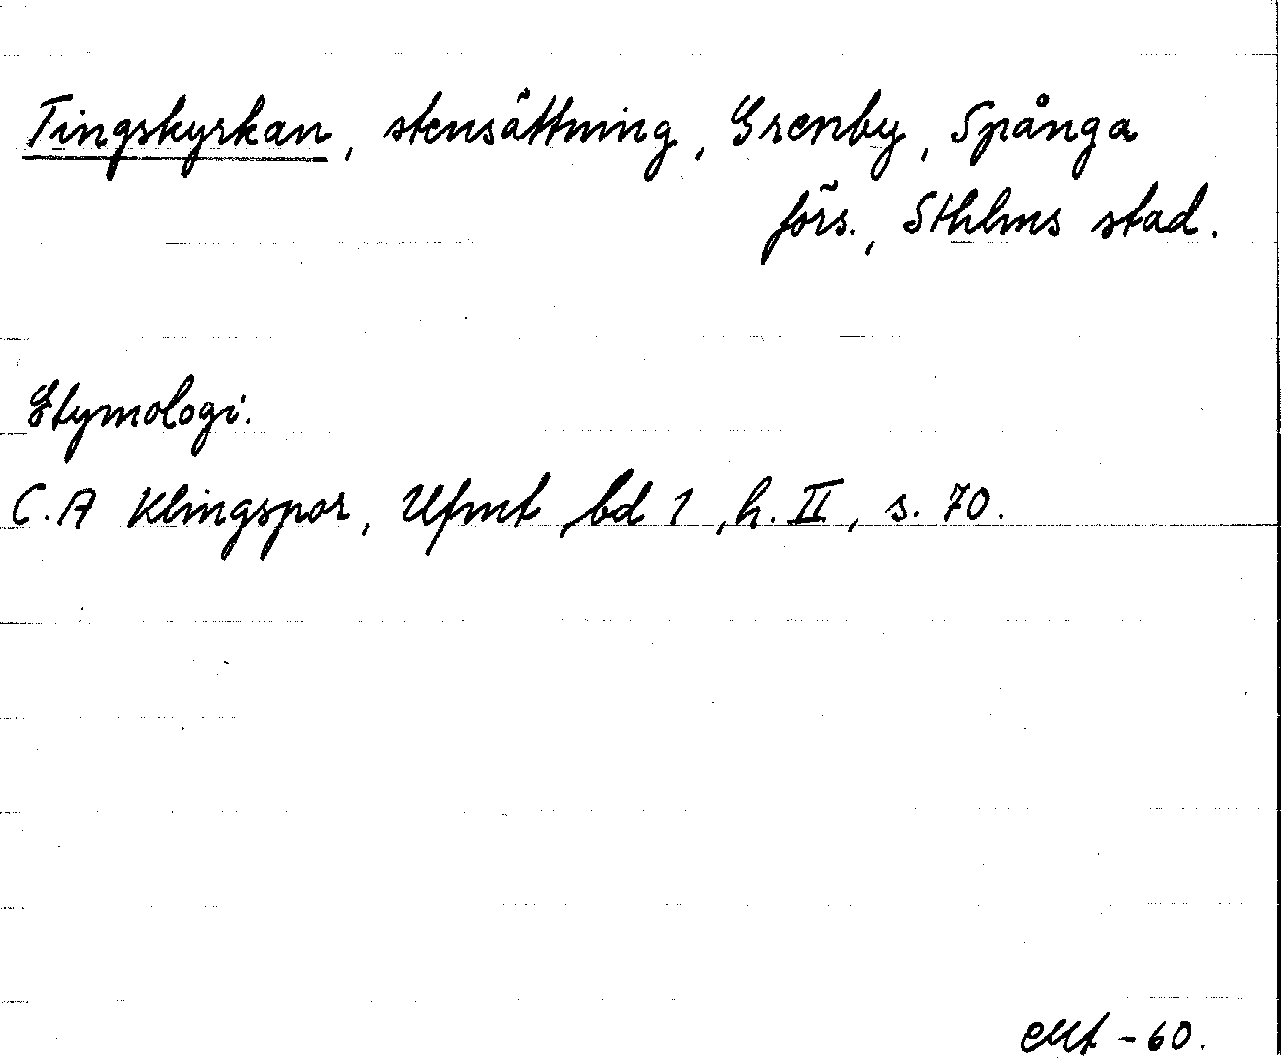 Tingskyrkan, stensättning, Grenby, Spånga
förs., Sthlms stad.
Etymologi.
C.A Klingspor, Ufmt bd 1, h. II, s. 70.
-60.